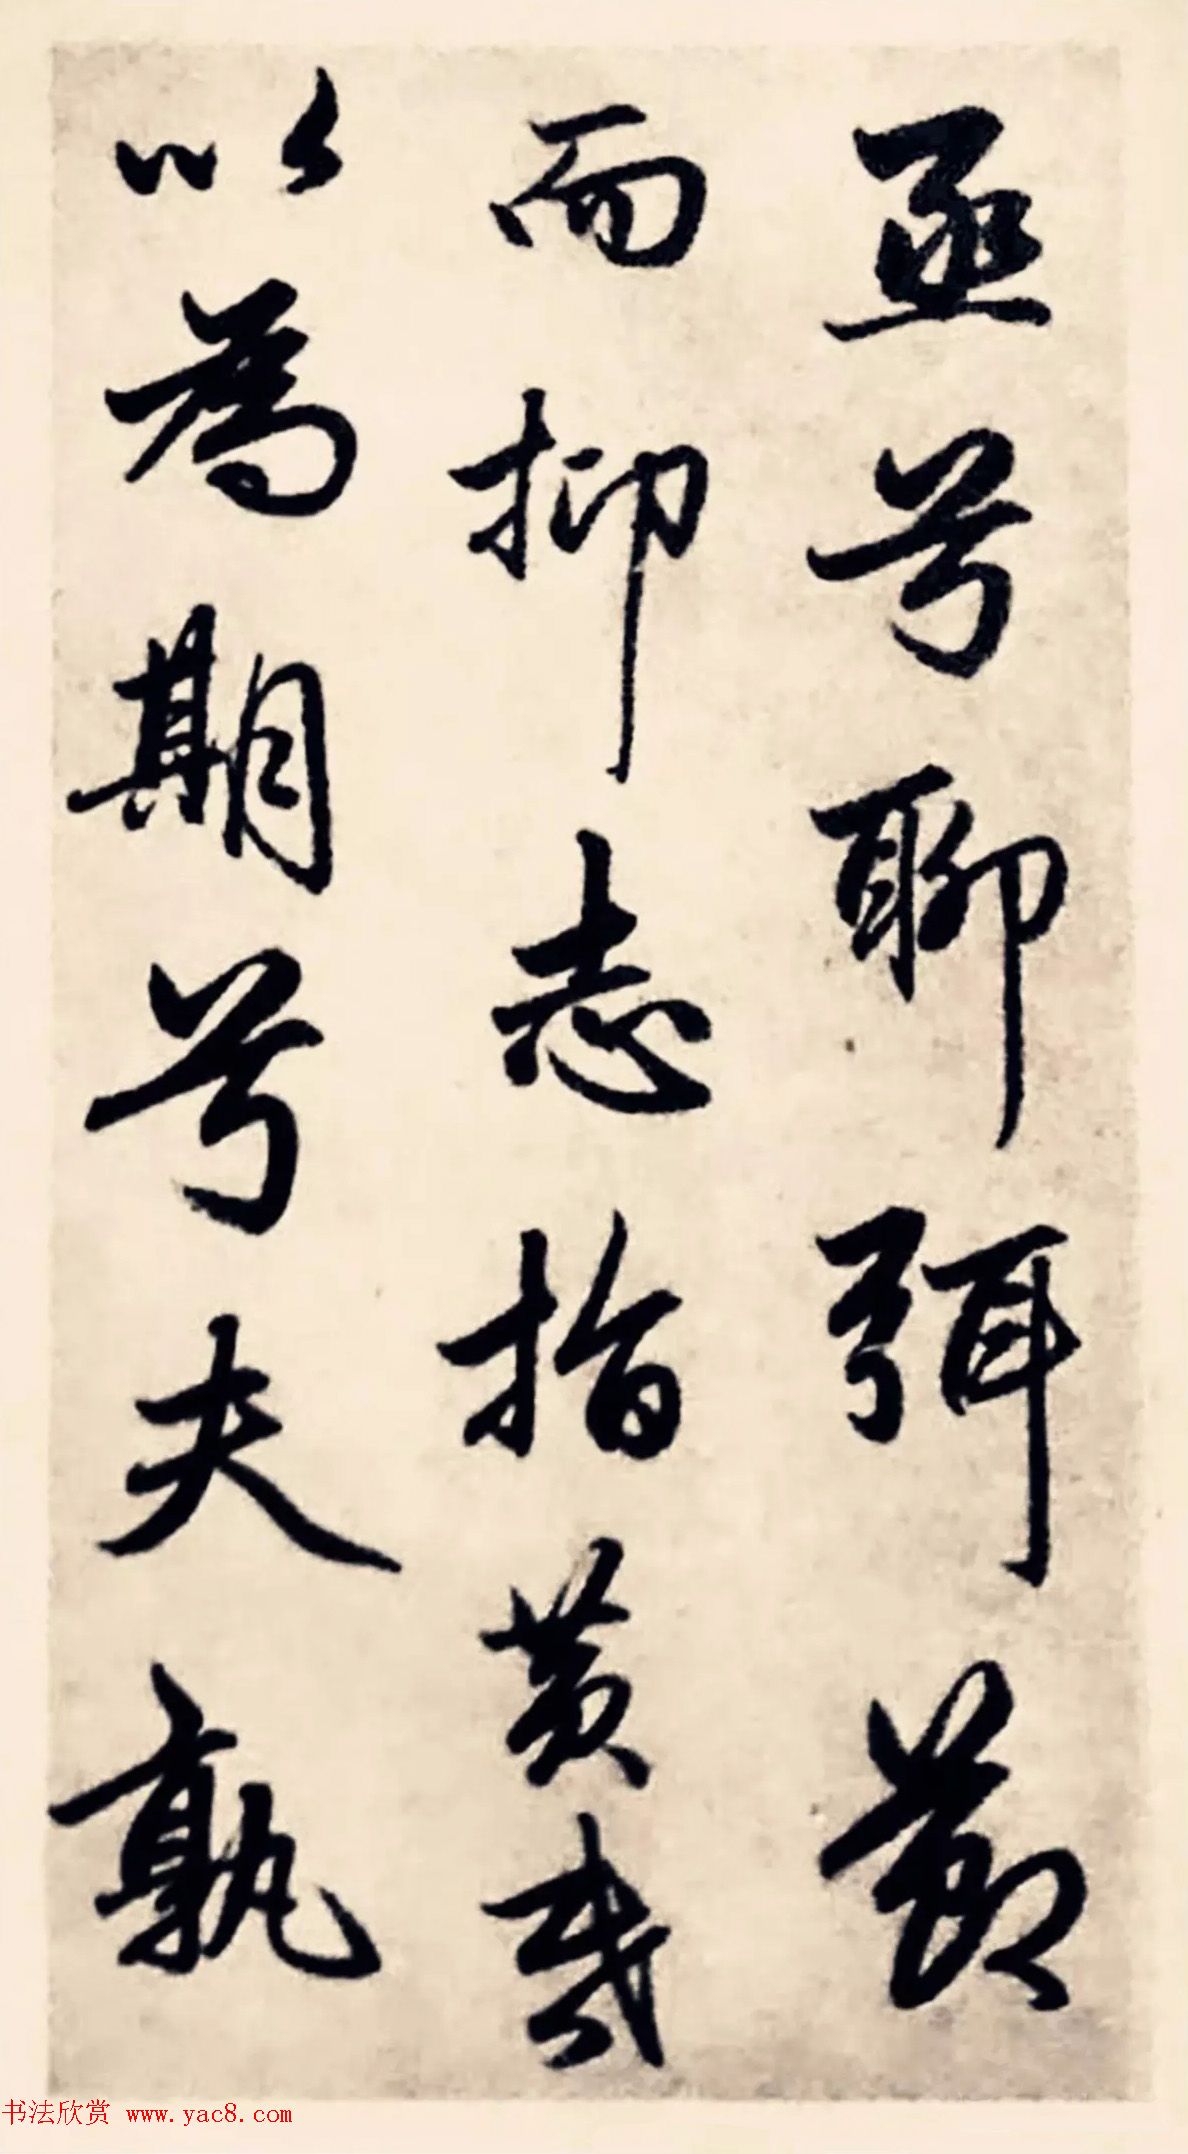 亟兮聊弭節
而抑志指黄昏
以為期兮夫孰
书法欣赏 www.yac8.com